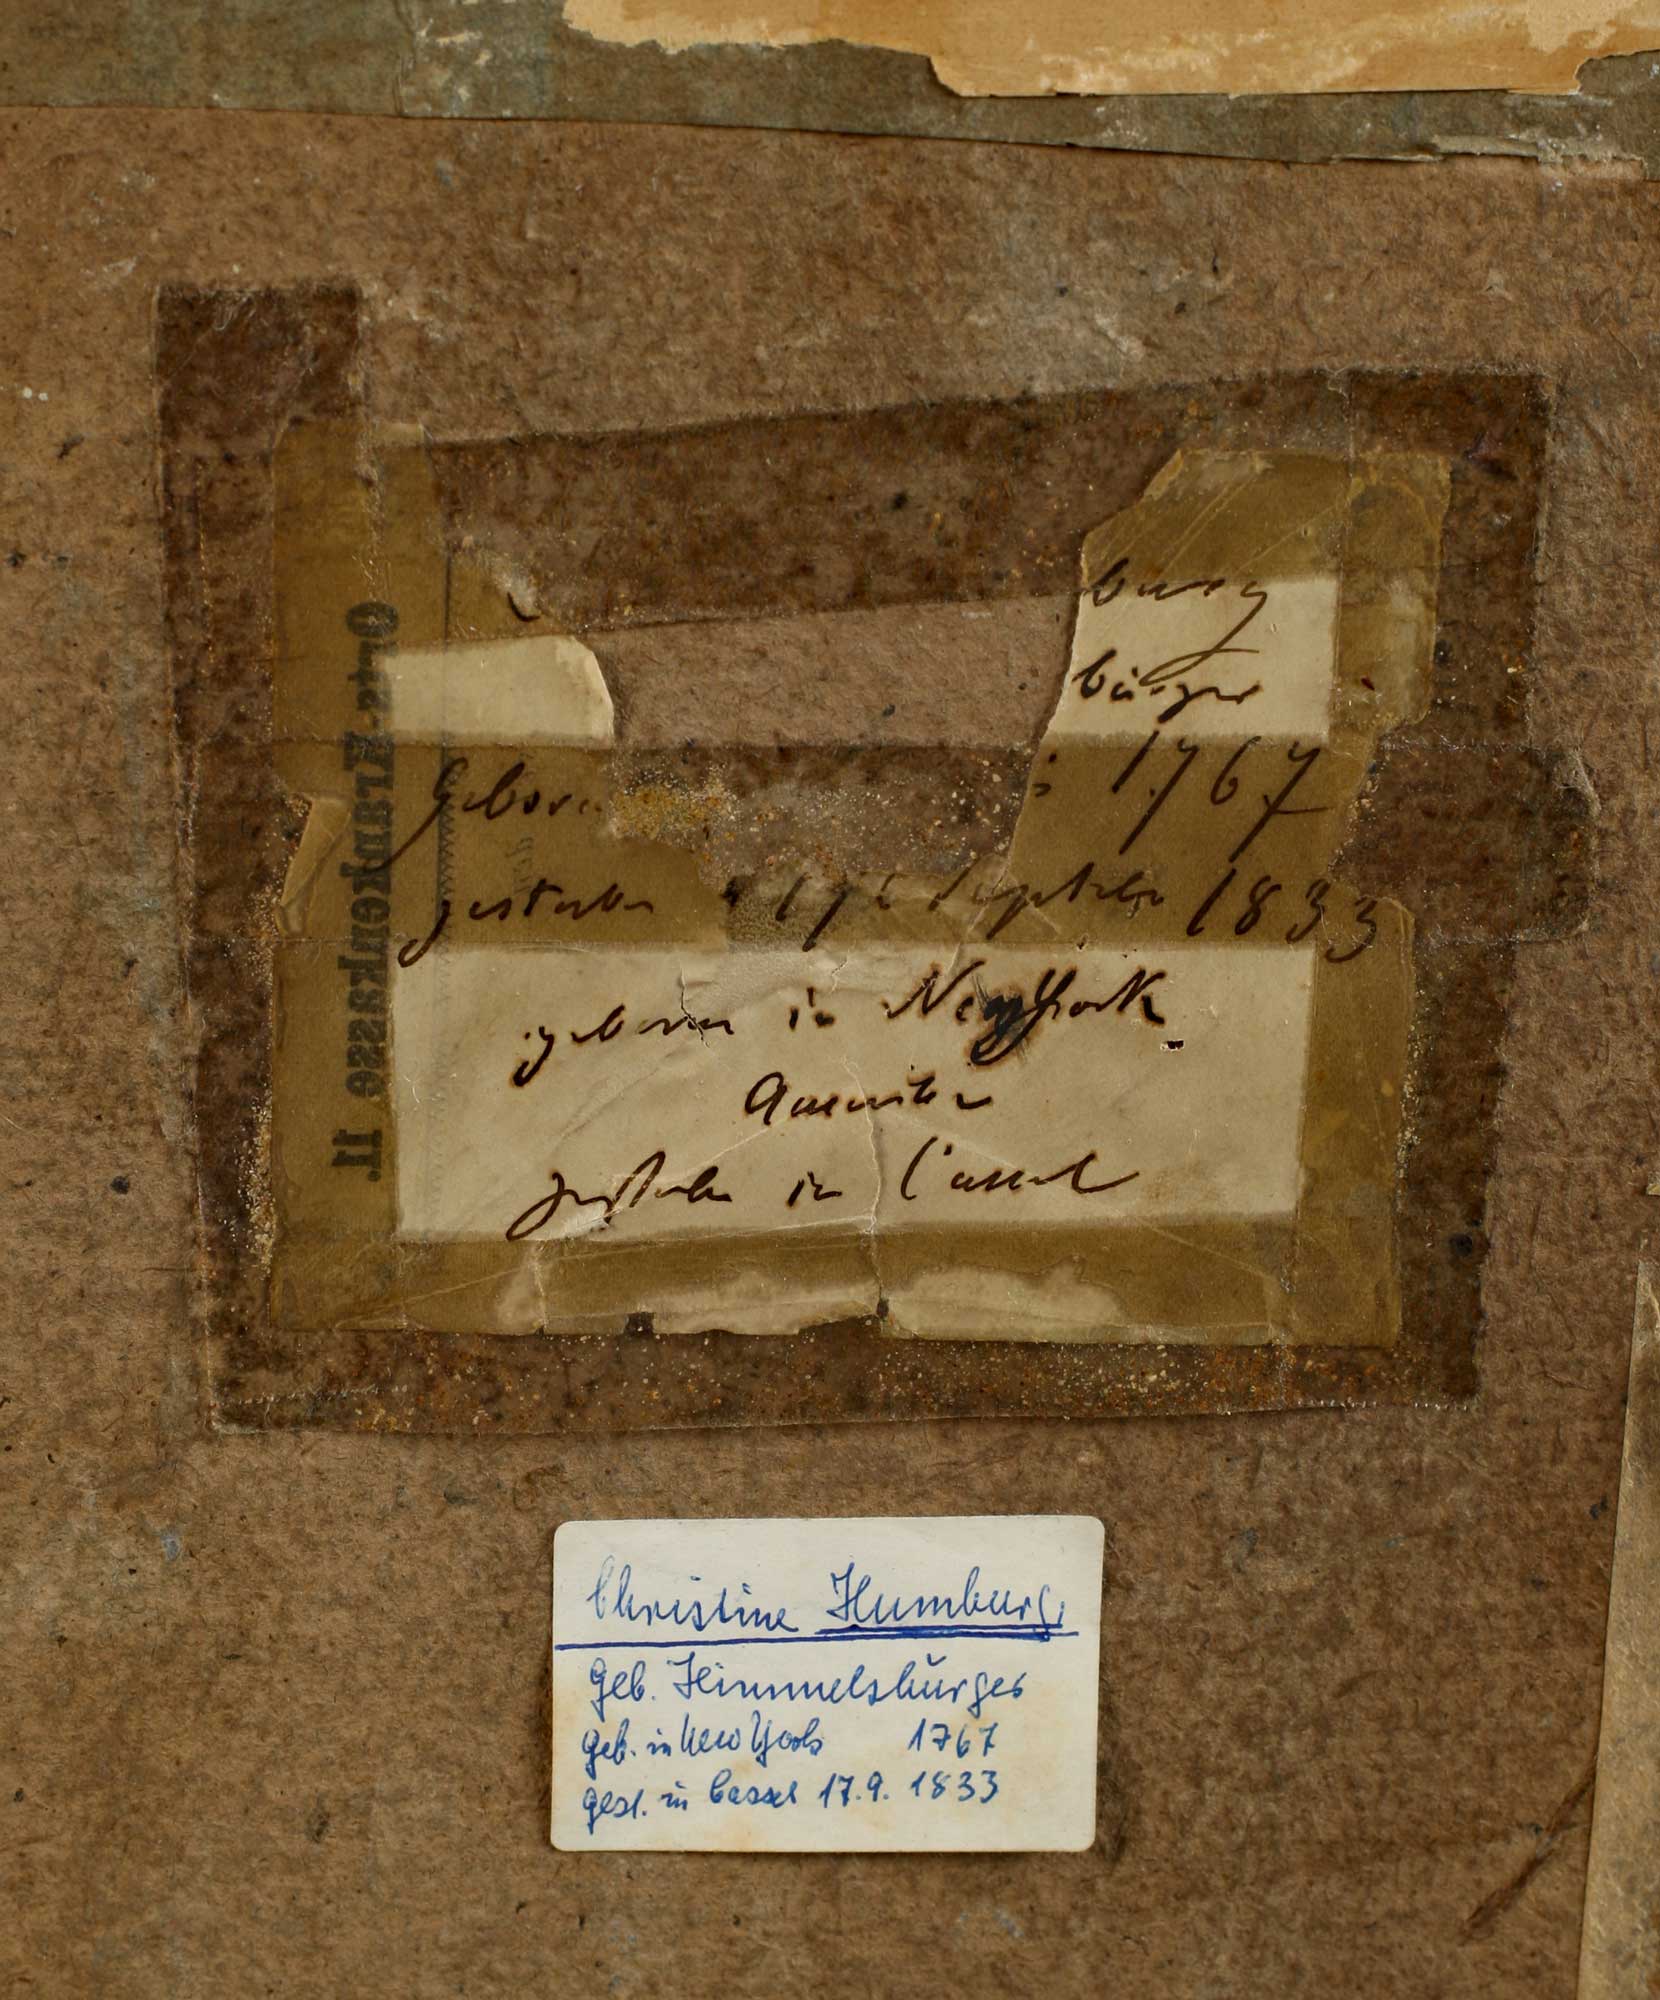 burg
bürger
Gebore : 1767
gestorben 17t September 1833
geboren in New York
Amerika
gestorben in Cassel
Orts-Krankenkasse 11.
Christine Humburg,
geb. Himmelsbürger
geb. in New York 1767
gest. in Cassel 17.9. 1833